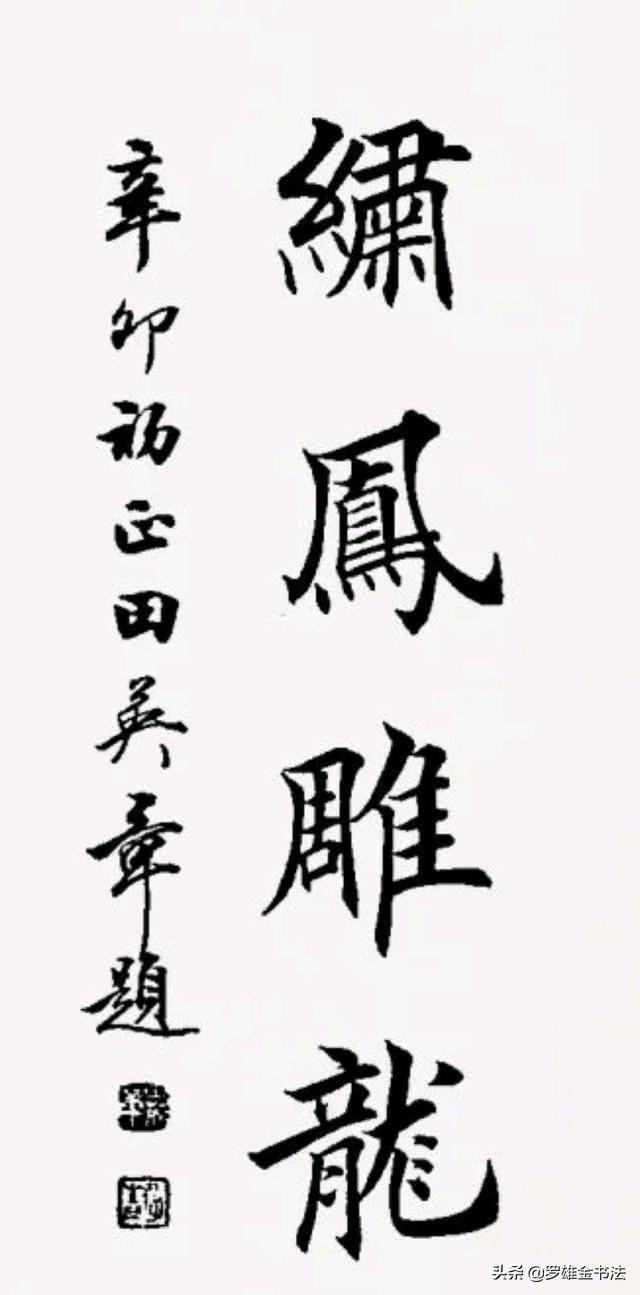 繡鳳雕龍
辛卯初正田英章題
头条 @罗雄金书法